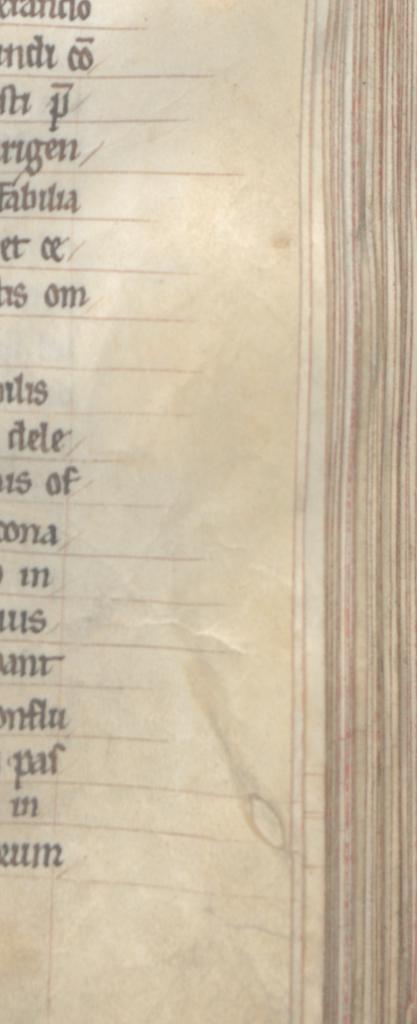 undi cō
sti p̄
rigen
fabilia
et ce
tis om
bilis
dele
nis of
cona
in
uus
pant
onflu
pas
in
eum